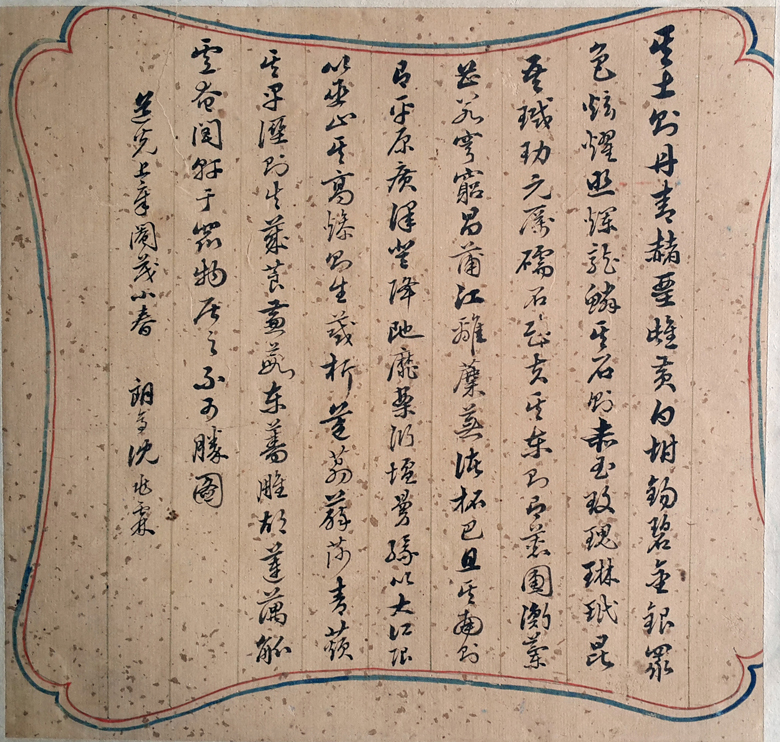 其土則丹青赭堊雌黃白坿錫碧金銀眾
色炫燿照爛龍鱗其石則赤玉玫瑰琳珉昆
吾瑊玏元厲碝石武夫其東則有蕙圃衡蘭
芷若穹窮昌蒲江蘺蘪蕪諸柘巴且其南則
有平原廣澤登降陁靡案衍壇曼緣以大江限
以巫山其高燥則生葴析苞荔薛莎青薠
其卑溼則生藏莨蒹葭東蘠雕胡蓮藕觚
盧奄閭軒于眾物居之不可勝圖
道光上章閹茂小春 朗亭沈兆霖